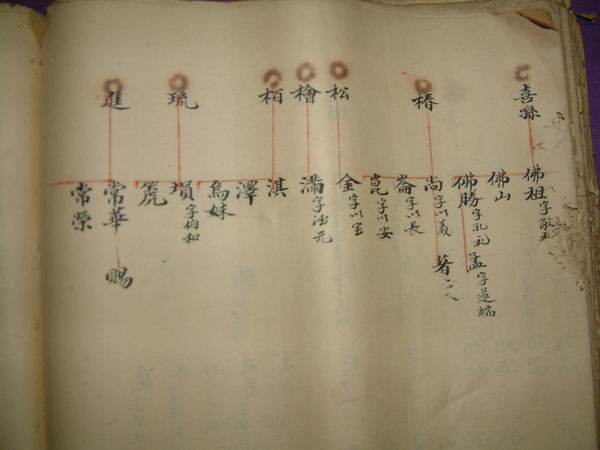 喜孫
椿
松
檜
栢
琉
進
佛祖字敬五
佛山
佛勝字孔礼
尚字以義
崙字以長
崑字以安
金字以宝
滿字法元
淇
澤
烏妹
塤字伯和
箎
常華
常榮
孟字遂端
著
賜